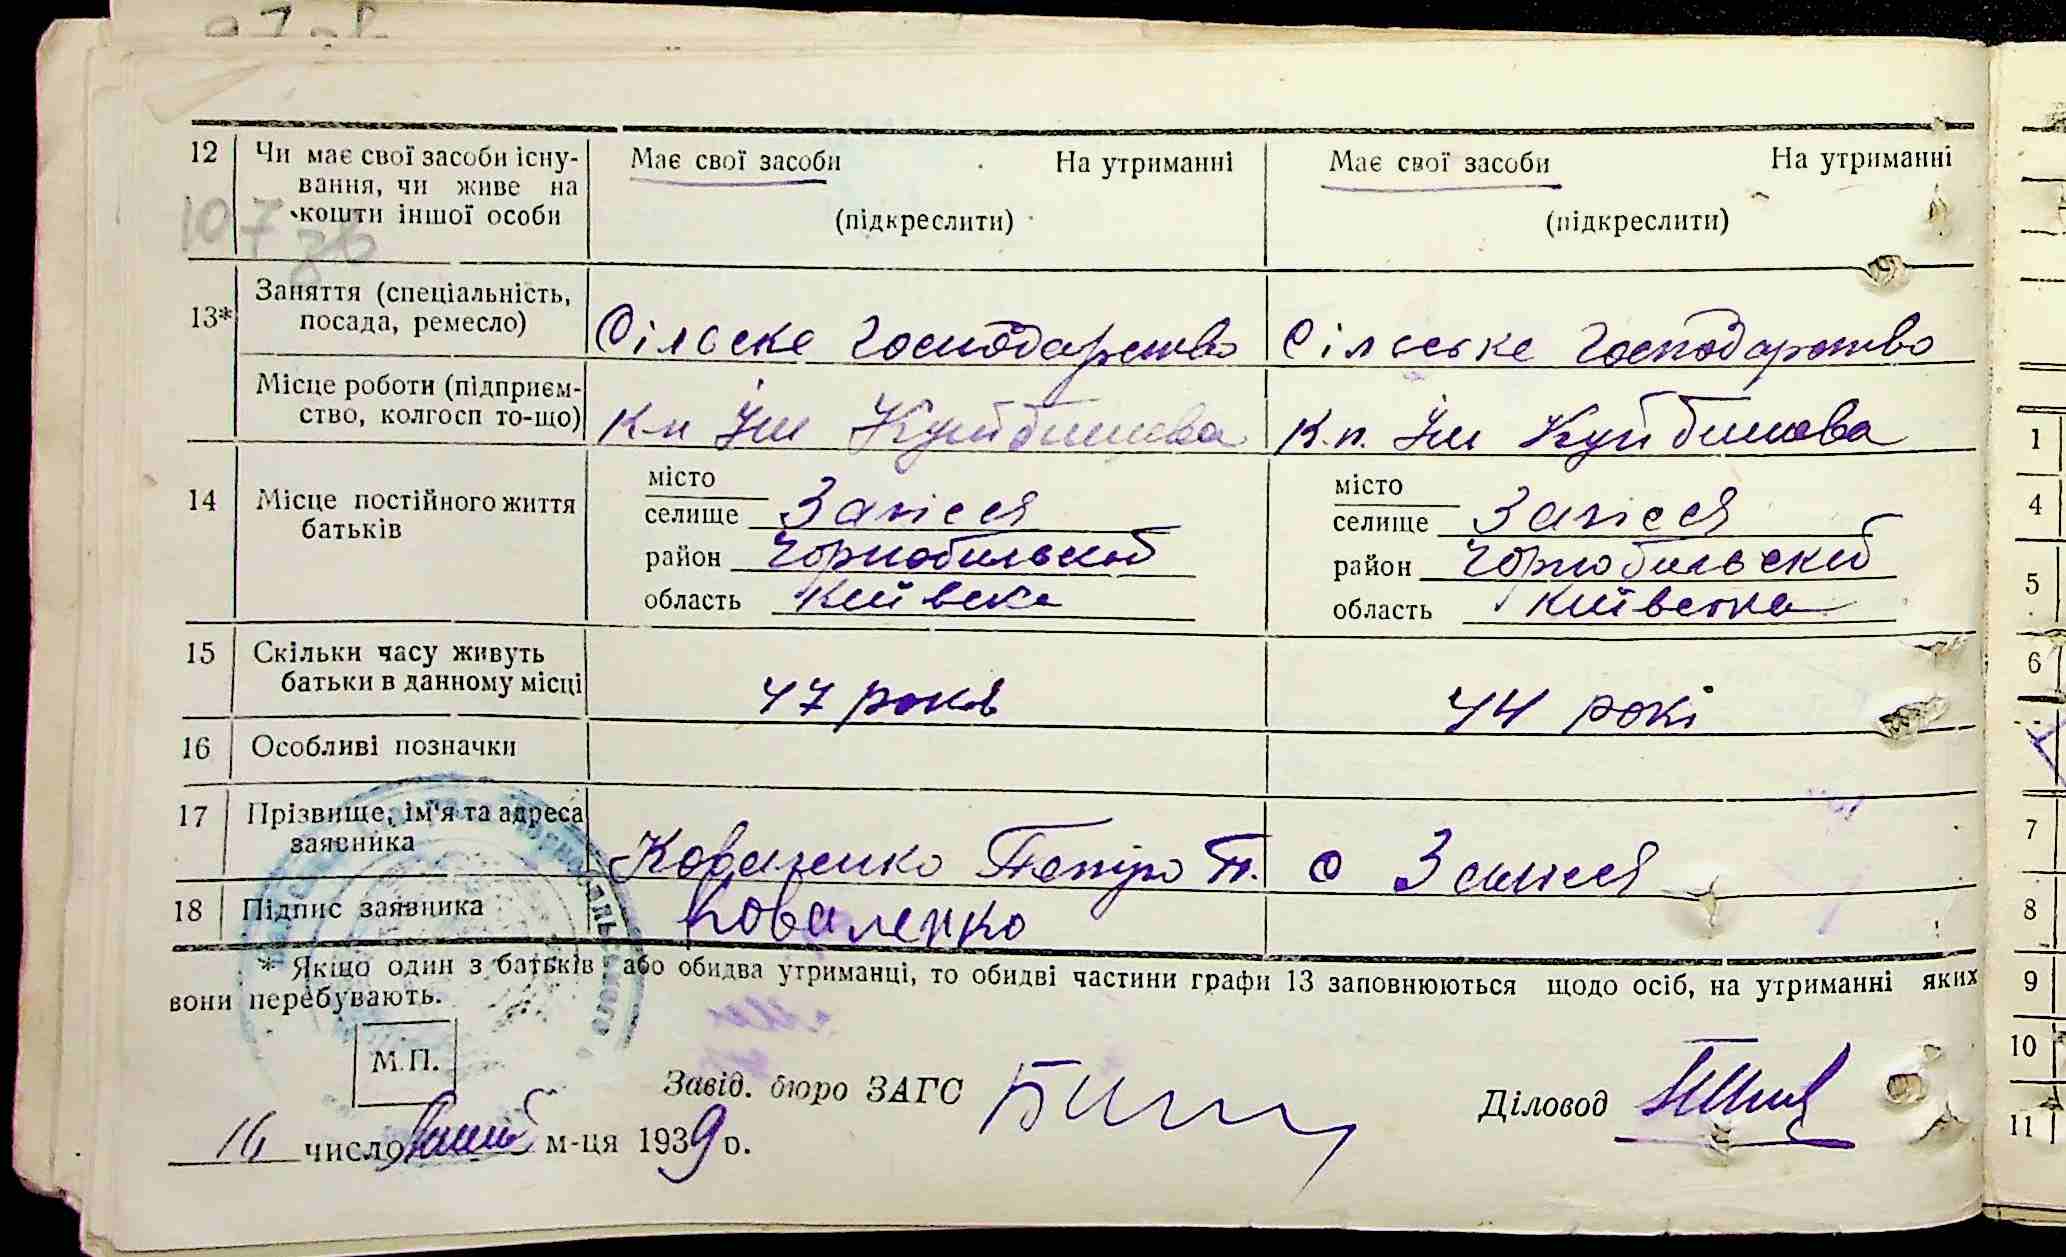 12 Чи має свої засоби існу- Має свої засоби На утриманні Має свої засоби На утриманні
вання, чи живе на
107 кошти іншої особи (підкреслити) (підкреслити)
зв
Заняття (спеціальність,
13* посада, ремесло) Сільське господарство Сільське господарство
Місце роботи (підприєм-
ство, колгосп то-що) К-п Ім Куйбишева К.п. Ім Куйбишева
14 Місце постійного життя місто місто
батьків селище Залісся селище Залісся
район Чорнобильский район Чорнобильский
область Київска область Київська
15 Скільки часу живуть
батьки в данному місці 47 років 44 рокі
16 Особливі позначки
17 Прізвище, ім'я та адреса
заявника Коваленко Петро П. с Залісся
18 Підпис заявника Коваленко
* Якщо один з батьків, або обидва утриманці, то обидві частини графи 13 заповнюються щодо осіб, на утриманні яких
вони перебувають.
М.П.
Завід. бюро ЗАГС Діловод
16 число м-ця 1939 р.
1
4
5
6
7
8
9
10
11